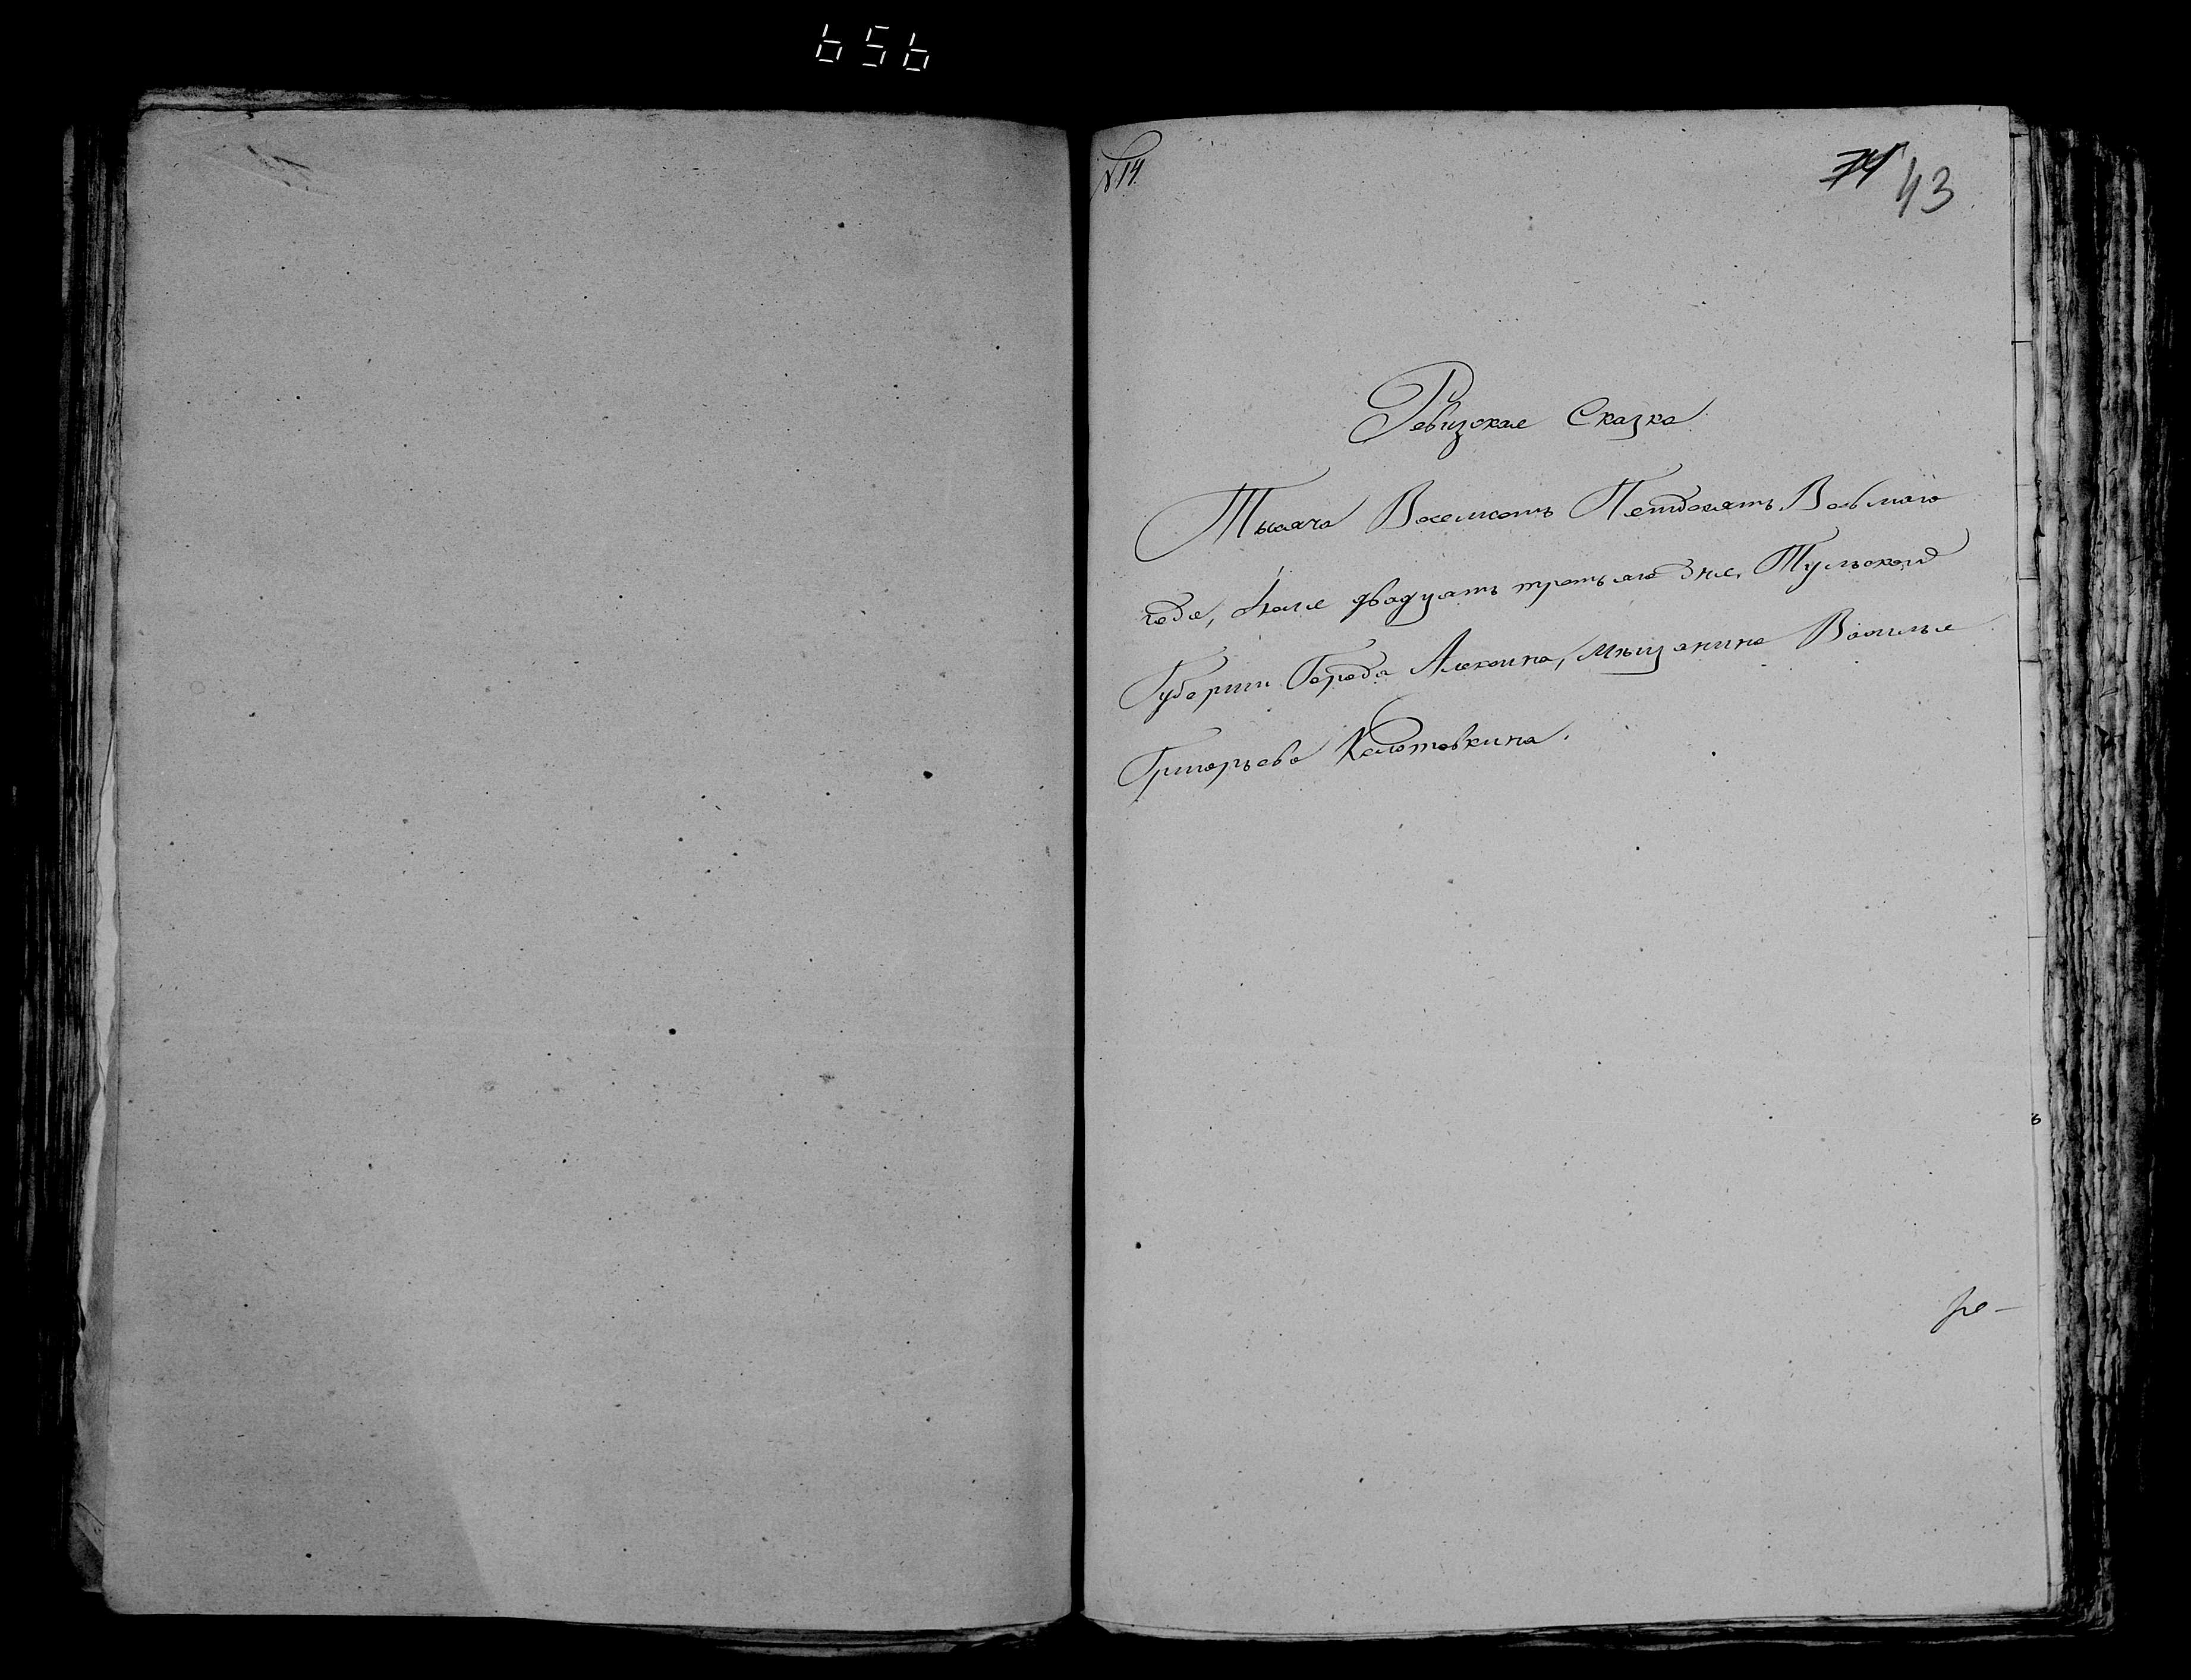 656
№ 14.
74 43
Ревизская Сказка
Тысяча Восемсотъ Петдесятъ Восьмаго
года, Июля двадцать третьяго дня, Тульской
Губернии Города Алексина, мѣщанина Василья
Григорьева Колотовкина.
Ре-